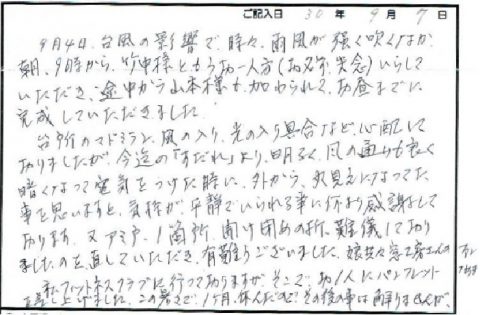 ご記入日 30年 9月 7日
9月4日、台風の影響で、時々、雨風が強く吹くなか、
朝、9時から、竹中様ともうお一人方(お名字、失念)いらして
いただき、途中から山本様も加わられて、お昼までに
完成していただきました。
台所のマドミラン、風の入り、光の入り具合など、心配して
おりましたが、今迄の「すだれ」より、明るく、風の通りも良く
暗くなって電気をつけた時に、外から、丸見えになってた
事を思いますと、気持が平静でいられる事に何より感謝して
おります。又アミ戸、1箇所、開け閉めの折、難儀しており
ましたのを、直していただき、有難うございました。娘共々
私、フィットネスクラブに行っておりますが、そこで、お1人にパンフレット
を差し上げました。この暑さで、1ヶ月、休んだので、その後の事は解りませんが、